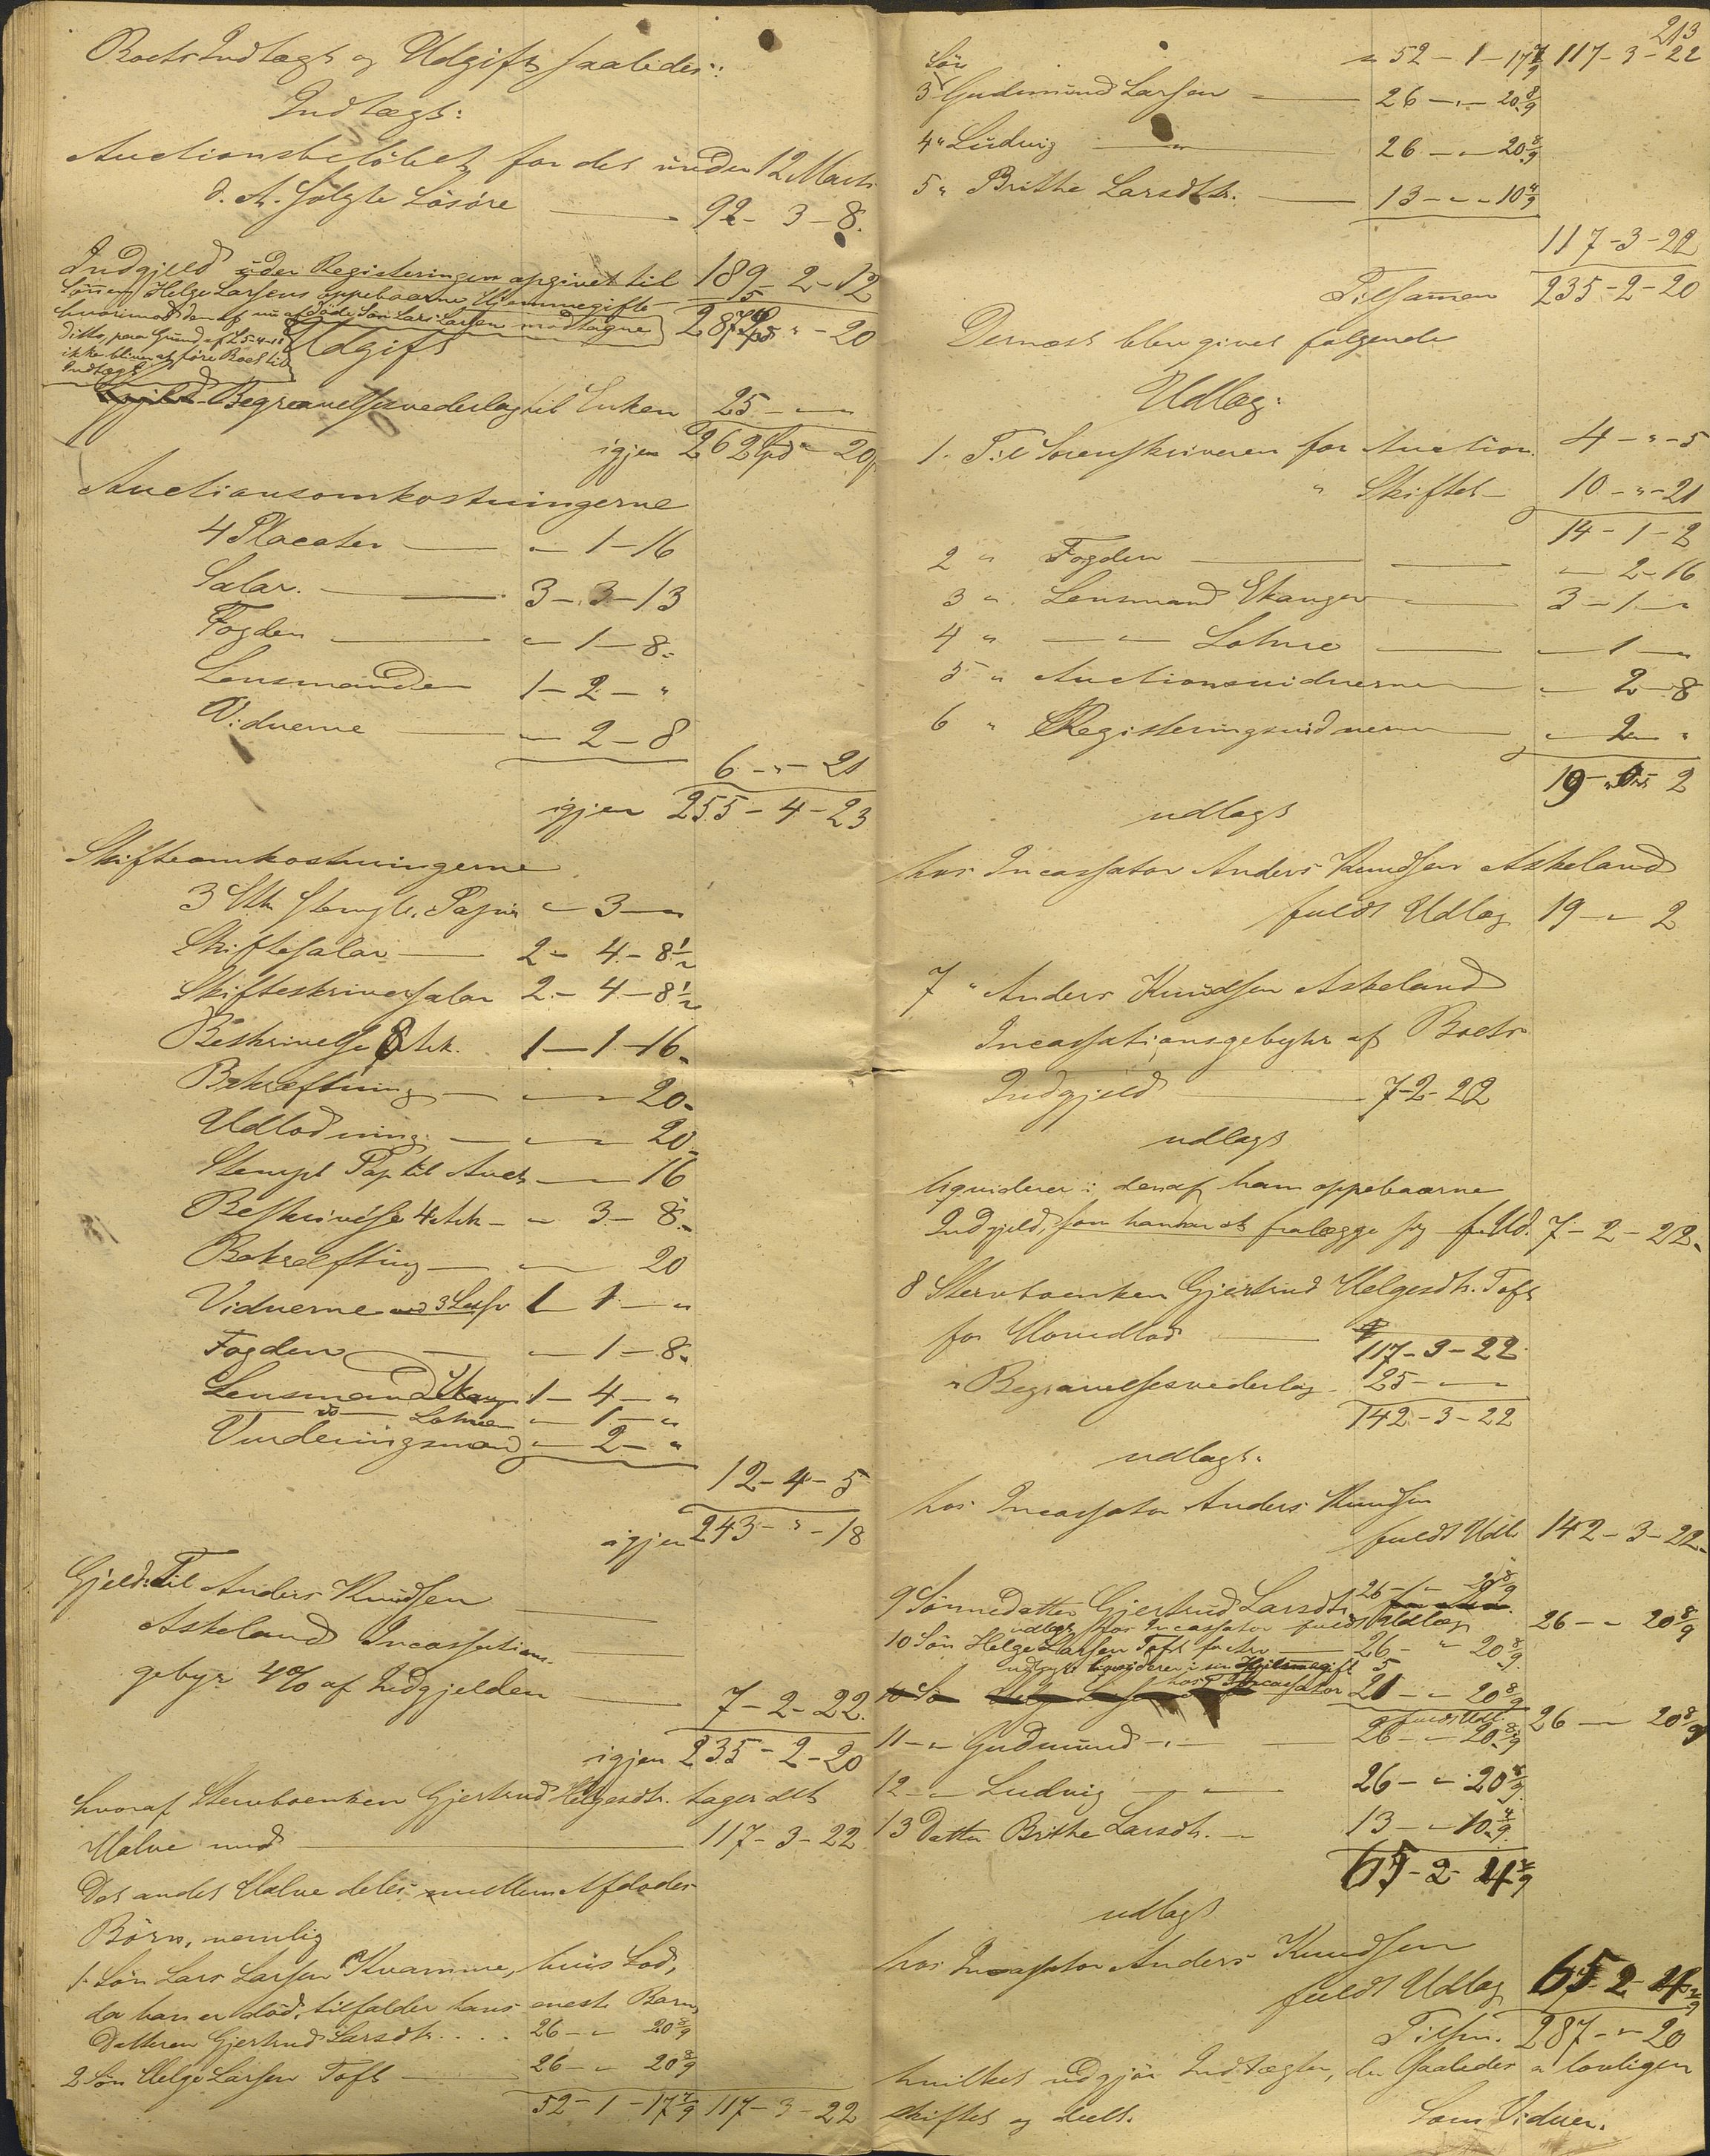 Boets Indtægt og Udgift saaledes:
Indtægt:
Auctionsbeløbet for det under 12 Marts
d. A. solgte Løsøre — 92 - 3 - 8.
Indgjeld under Registeringen opgivet til 189 - 2 - 12
Sønnen Helge Larsens oppebaarne Hjemmegifte — 5
hvorimod den af nu afdøde Søn Lars Larsen modtagne 287 - " - 20
ditto, paa Grund af
ikke bliver at føre Boet til
Indtægt.
Udgift
Begravelsesvederlag til Enken 25 - " - "
igjen 262 - " - 20
Auctionsomkostningerne
4 Placater — " - 1 - 16
Salær. — 3 - 3 - 13
Fogden — " - 1 - 8.
Lensmanden 1 - 2 - "
Vidnerne — " - 2 - 8
6 - " - 21
igjen 255 - 4 - 23
Skifteomkostningerne
3 Stk stempl. Papir " - 3 - "
Skiftesalær — 2 - 4 - 8 1/2
Skifteskriversalær 2 - 4 - 8 1/2
Beskrivelse 8 Ark. 1 - 1 - 16.
Bekræftning — " - " - 20.
Udlodning — " - " - 20.
Stempl Pap til Auct — " - 16
Beskrivelse 4 Ark — " - 3 - 8.
Bekræftning — " - 20
Vidnerne 1 - 1 - "
Fogden — " - 1 - 8.
Lensmand Ekanger 1 - 4 - "
— do — Lohne " - 1 - "
Vurderingsmænd " - 2 - "
12 - 4 - 5
igjen 243 - " - 18
Gjeld: Til Anders Knudsen
Askeland Incassations-
gebyr 4% af Indgjelden — 7 - 2 - 22.
igjen 235 - 2 - 20
hvoraf Stervboenken Gjertrud Helgesdtr. tager det
Halve med — 117 - 3 - 22
Det andet Halve deles mellem Afdødes
Børn, nemlig
1. Søn Lars Larsen Kvamme, hvis Lod,
da han er død, tilfalder hans eneste Barn,
Datteren Gjertrud Larsdtr. . . . 26 - " - 20 8/9
2 Søn Helge Larsen Toft — 26 - " - 20 8/9
52 - 1 - 17 7/9 117 - 3 - 22
213
" 52 - 1 - 17 7/9 117 - 3 - 22
Søn
3 Gudmund Larsen — 26 - " - 20 8/9
4 " Ludvig — " — 26 - " - 20 8/9
5 " Brithe Larsdtr. — 13 - " - 10 4/9
117 - 3 - 22
Tilsammen 235 - 2 - 20
Dernæst blev givet følgende
Udlæg:
1. Til Sorenskriveren for Auction. 4 - " - 5
" Skiftet — 10 - " - 21
14 - 1 - 2
2 " Fogden — " - 2 - 16
3 " Lensmand Ekanger — 3 - 1 - "
4 " — " — Lohne — " - 1 - "
5 " Auctionsvidnerne — " - 2 - 8
6 " Registeringsvidnerne — " - 2 - "
19 - " - 2
udlagt
hos Incassator Anders Knudsen Askeland
fuldt Udlæg 19 - " - 2
7 " Anders Knudsen Askeland
Incassationsgebyhr af Boets
Indgjeld — 7 - 2 - 22
udlagt
liqviderer i den af ham oppebaarne
Indgjeld, som han har at fralægge sig fuld. 7 - 2 - 22.
8 Stervboenken Gjertrud Helgesdtr. Toft
for Hovedlod — 117 - 3 - 22.
" Begravelsesvederlag 25 - " - "
142 - 3 - 22
udlagt.
hos Incassator Anders Knudsen
fuldt Udl 142 - 3 - 22.
9 Sønnedatter Gjertrud Larsdtr. 26 - " - 20 8/9
udlagt hos Incassator fuldt Udlæg 26 - " - 20 8/9
10 Søn Helge Larsen Toft for Arv — 26 - " - 20 8/9.
udlagt: liqviderer i sin Hjemmegift 5
hos Incassator 21 - " - 20 8/9
fuldt Udl. 26 - " - 20 8/9
11 - " Gudmund — " — 26 - " - 20 8/9
12 - " Ludvig — " — 26 - " - 20 8/9.
13 Datter Brithe Larsdtr. — 13 - " - 10 4/9.
65 - 2 - 4 2/9
udlagt
hos Incassator Anders Knudsen
fuldt Udlæg 65 - 2 - 4 2/9
Tilsm. 287 - " - 20
hvilket udgjør Indtægten, der saaledes er lovligen
skiftet og deelt. Som Vidner.